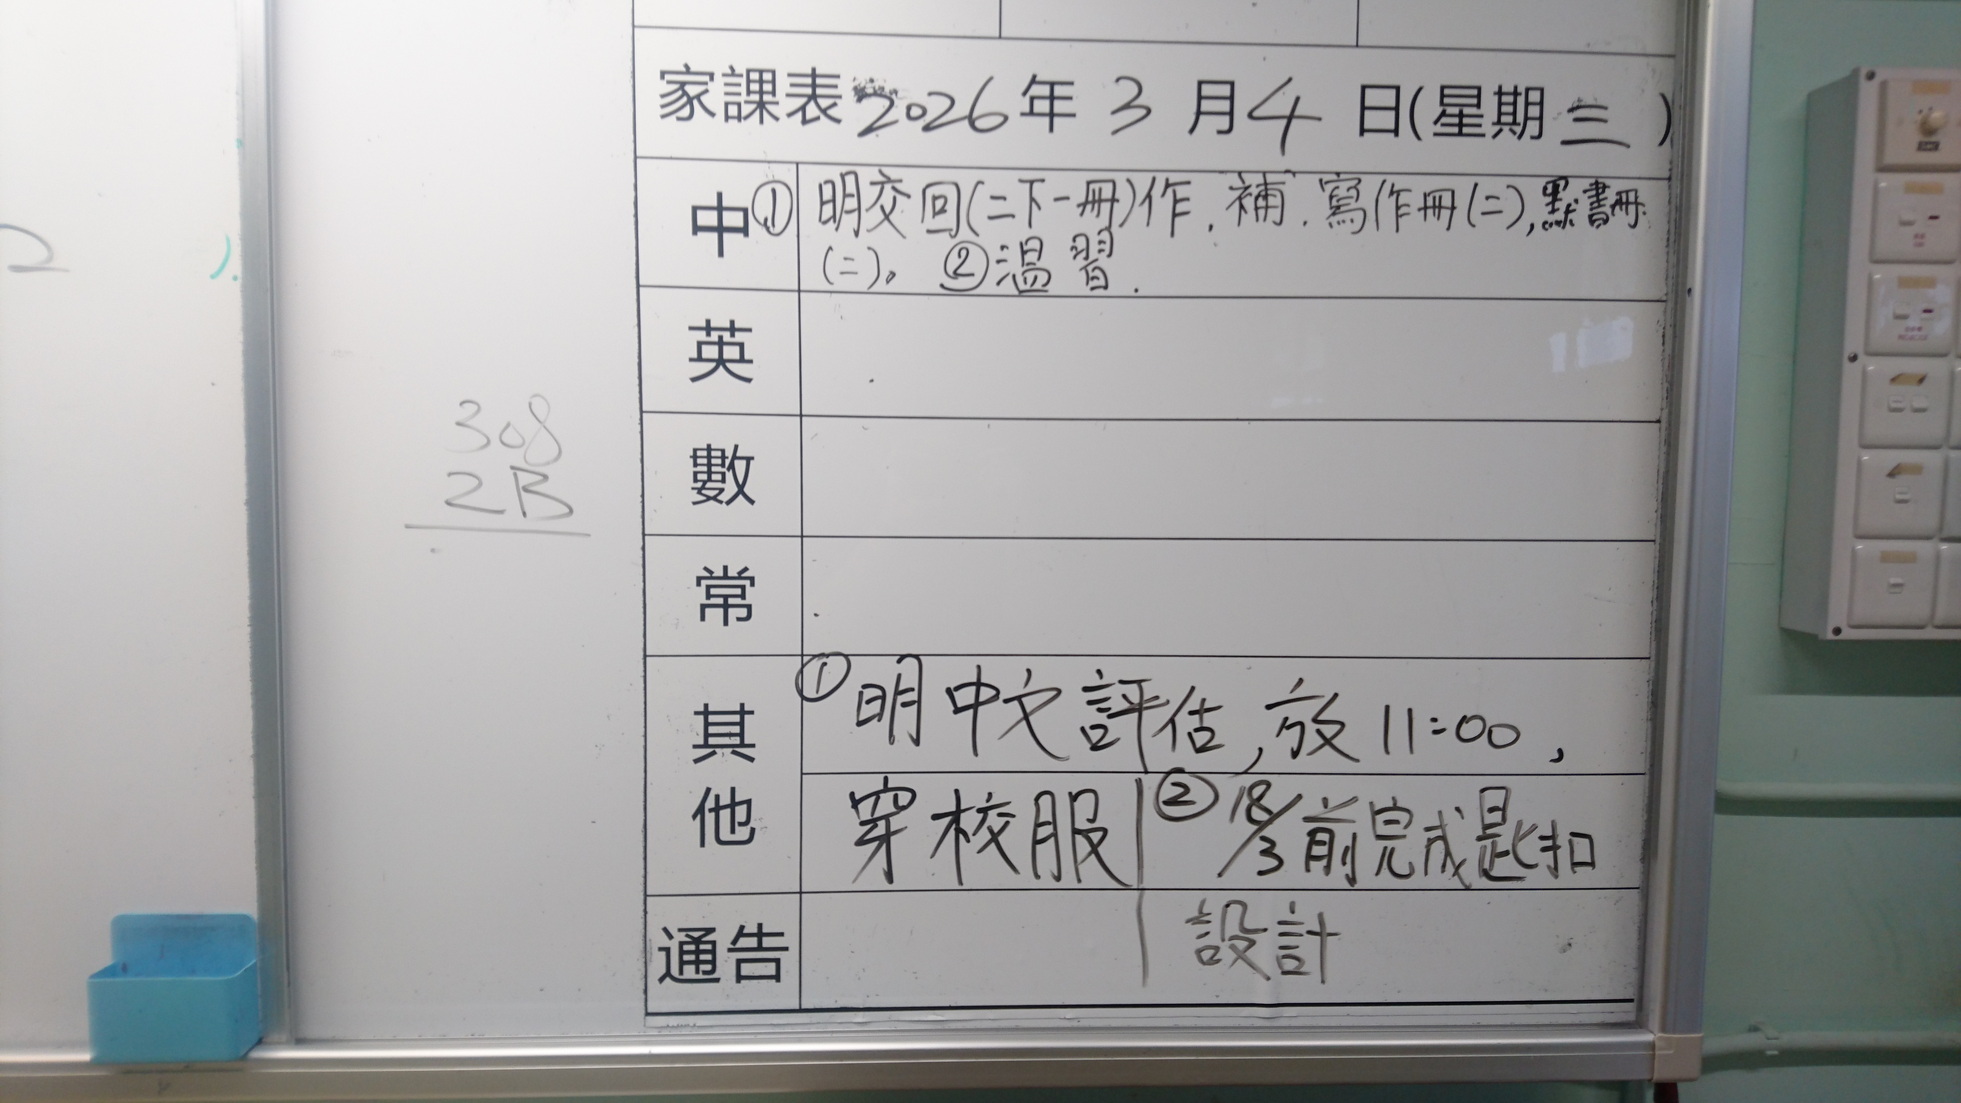 家課表 2026年 3 月 4 日(星期 三 )
中 ① 明交回(二下一冊)作.補.寫作冊(二),默書冊
(二)。 ②溫習.
英
數
常
308
2B
其他 ①明中文評估,放11:00,
穿校服 ②18/3前完成匙扣
通告 設計